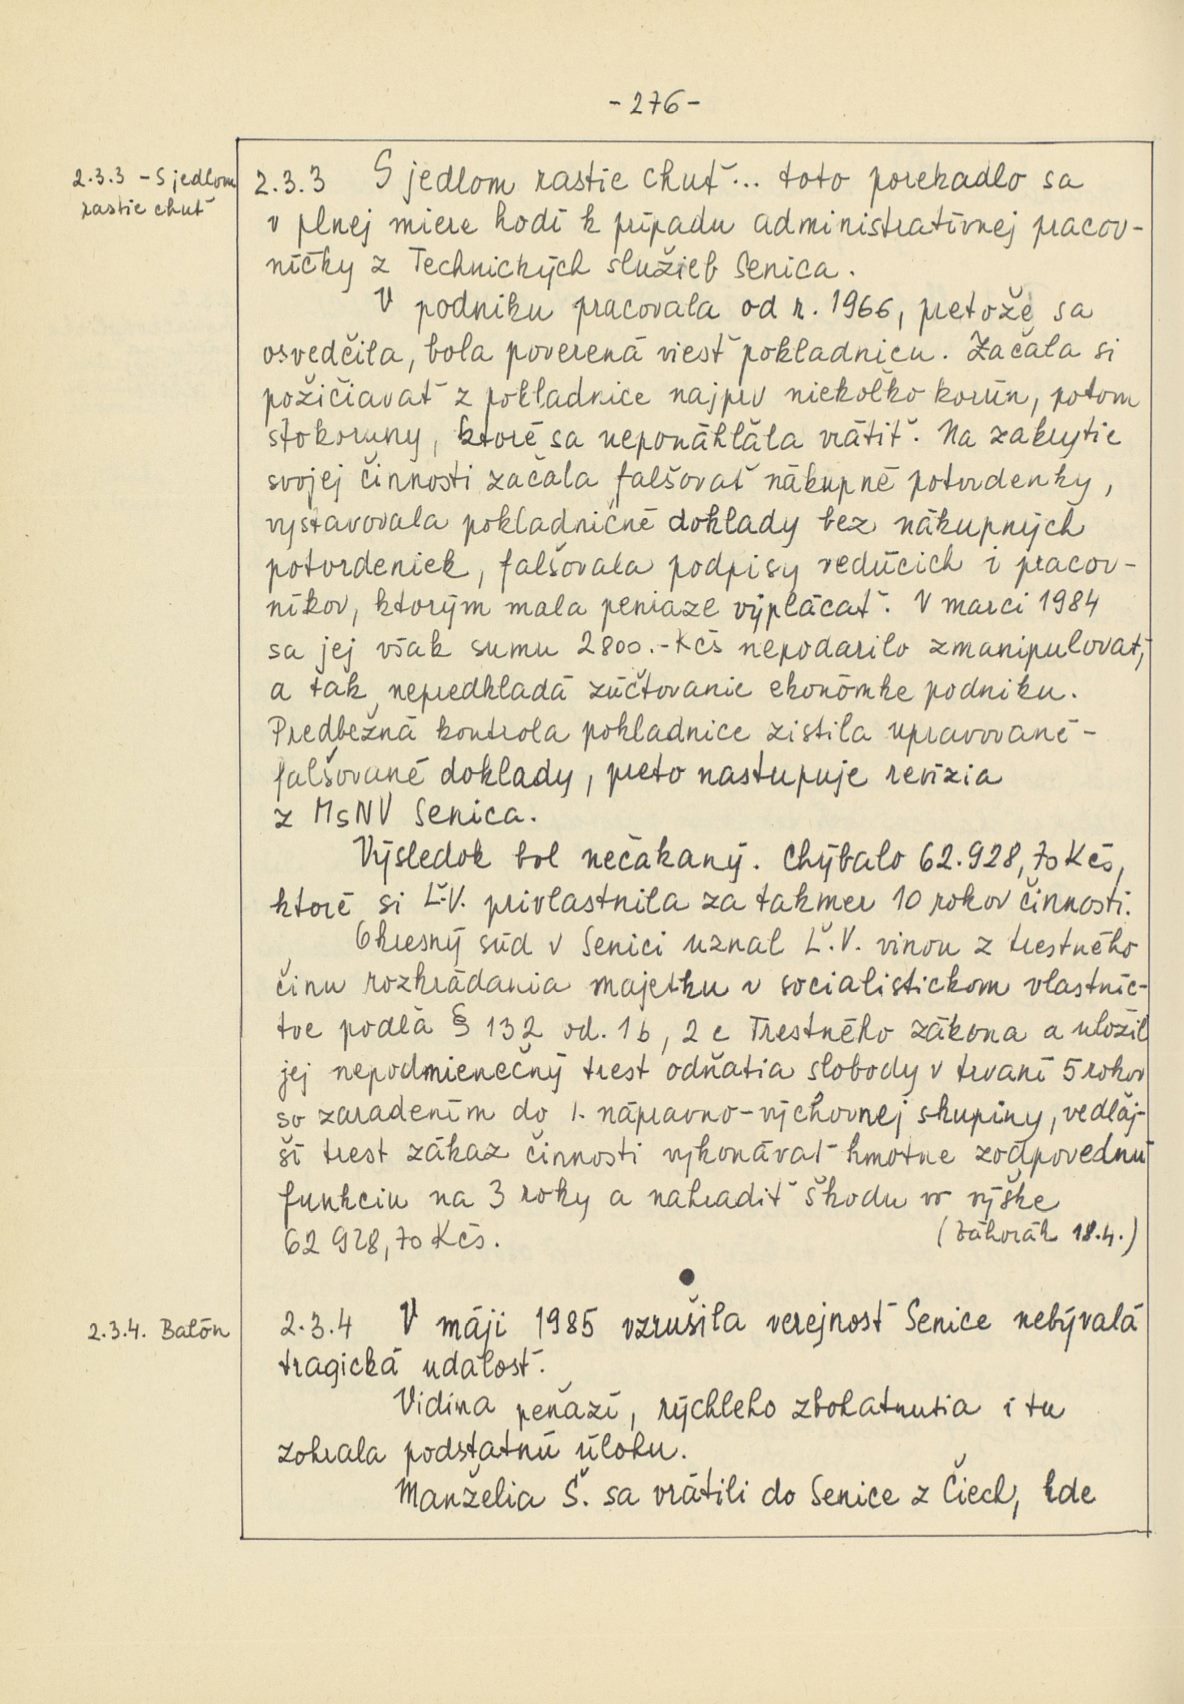 -276-
2.3.3 - S jedlom
rastie chuť
2.3.3 S jedlom rastie chuť... toto porekadlo sa
v plnej miere hodí k prípadu administratívnej pracov-
níčky z Technických služieb Senica.
V podniku pracovala od r. 1966, pretože sa
osvedčila, bola poverená viesť pokladnicu. Začala si
požičiavať z pokladnice najprv niekoľko korún, potom
stokoruny, ktoré sa neponáhľala vrátiť. Na zakrytie
svojej činnosti začala falšovať nákupné potvrdenky,
vystavovala pokladničné doklady bez nákupných
potvrdeniek, falšovala podpisy vedúcich i pracov-
níkov, ktorým mala peniaze vyplácať. V marci 1984
sa jej však sumu 2800.-Kčs nepodarilo zmanipulovať,
a tak nepredkladá zúčtovanie ekonómke podniku.
Predbežná kontrola pokladnice zistila upravované-
falšované doklady, preto nastupuje revízia
z MsNV Senica.
Výsledok bol nečakaný. Chýbalo 62.928,70 Kčs,
ktoré si Ľ.V. privlastnila za takmer 10 rokov činnosti.
Okresný súd v Senici uznal Ľ.V. vinou z trestného
činu rozkrádania majetku v socialistickom vlastníc-
tve podľa § 132 od. 1b, 2c Trestného zákona a uložil
jej nepodmienečný trest odňatia slobody v trvaní 5 rokov
so zaradením do 1. nápravno-výchovnej skupiny, vedľaj-
ší trest zákaz činnosti vykonávať hmotne zodpovednú
funkciu na 3 roky a nahradiť škodu vo výške
62 928,70 Kčs. (Záhorák 18.4.)
2.3.4. Balón
2.3.4 V máji 1985 vzrušila verejnosť Senice nebývalá
tragická udalosť.
Vidina peňazí, rýchleho zbohatnutia i tu
zohrala podstatnú úlohu.
Manželia Š. sa vrátili do Senice z Čiech, kde